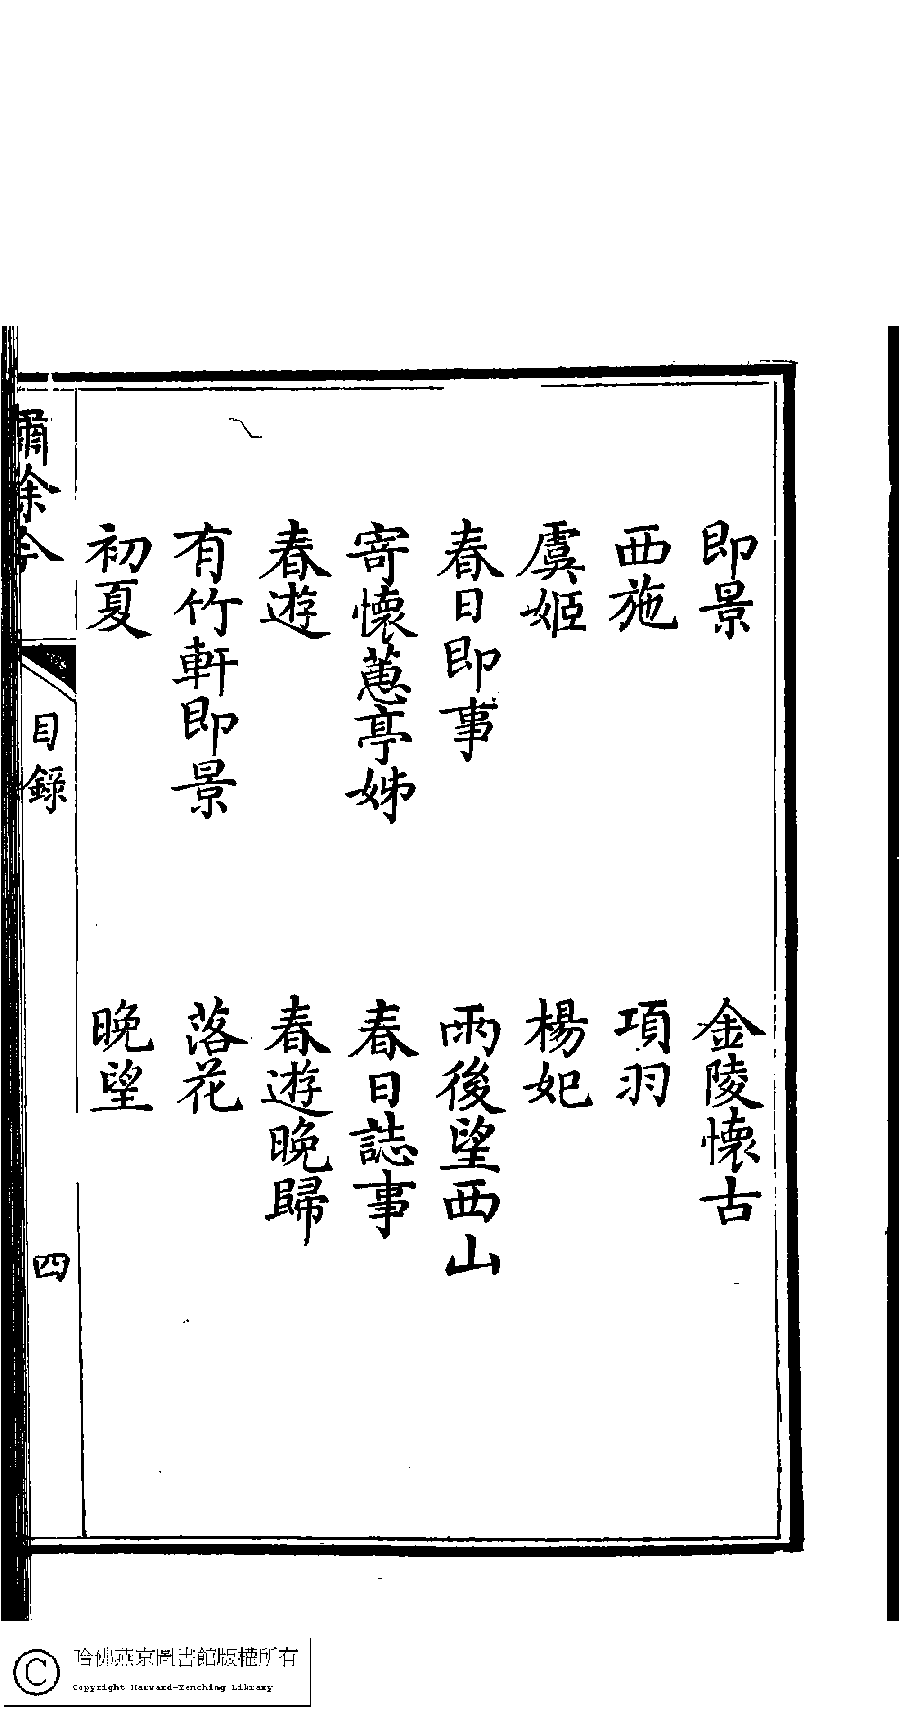 即景 金陵懷古
西施 項羽
虞姬 楊妃
春日即事 雨後望西山
寄懷蕙亭姊 春日誌事
春遊 春遊晚歸
有竹軒即景 落花
初夏 晚望
目錄 四
哈佛燕京圖書館版權所有
Copyright Harvard-Yenching Library